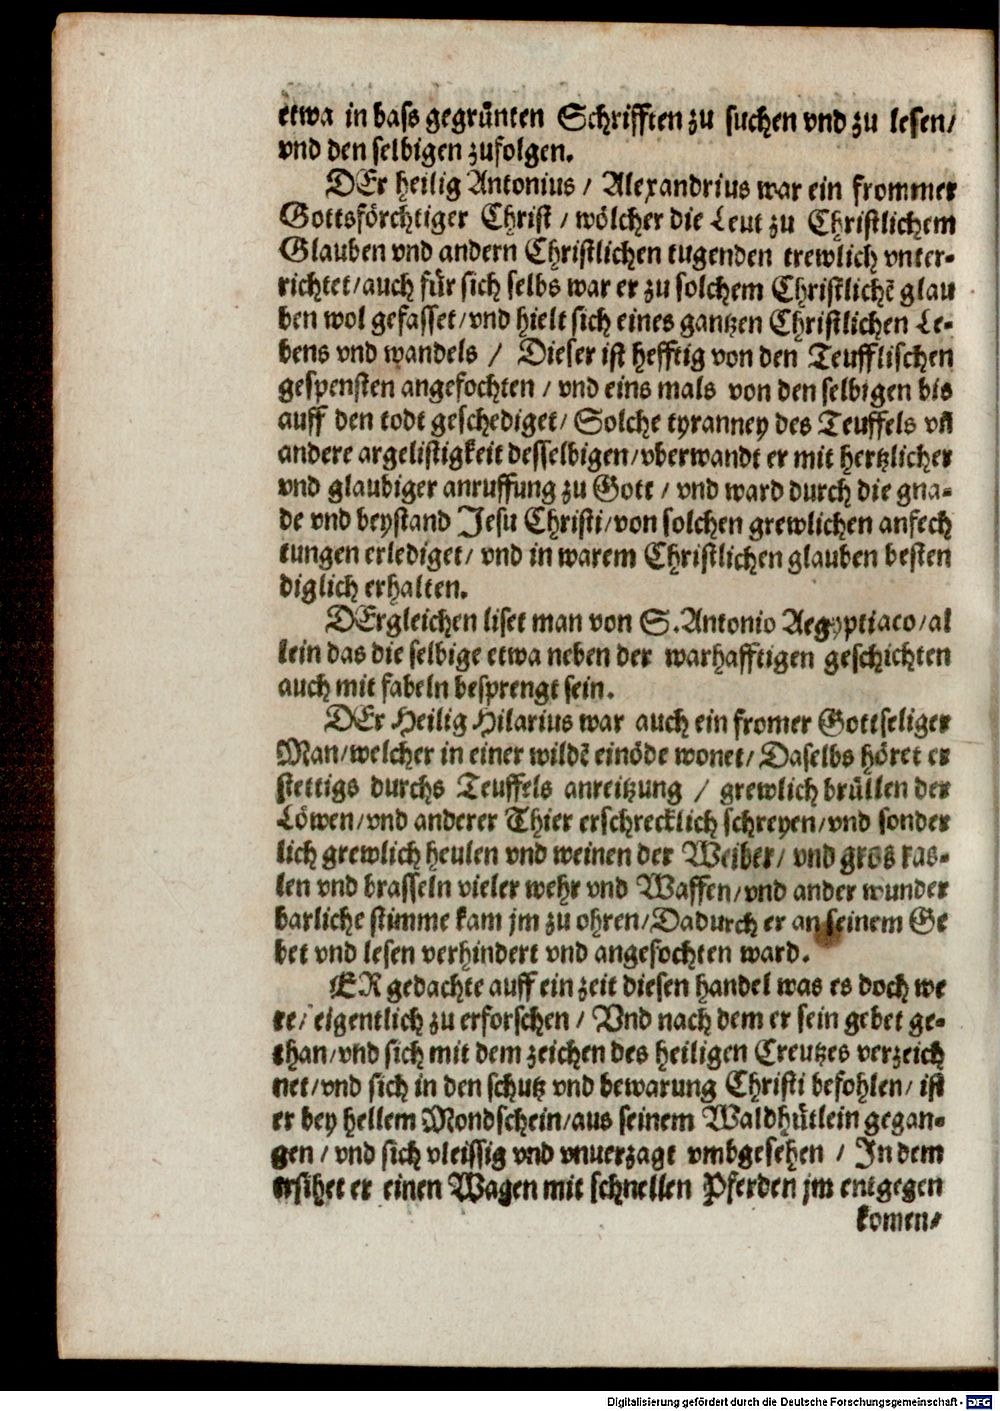 etwa in bass gegrünten Schrifften zu suchen vnd zu lesen/
vnd den selbigen zufolgen.
DEr heilig Antonius / Alexandrius war ein frommer
Gottsförchtiger Christ / wölcher die Leut zu Christlichem
Glauben vnd andern Christlichen tugenden trewlich vnter-
richtet/auch für sich selbs war er zu solchem Christlichē glau
ben wol gefasset/vnd hielt sich eines gantzen Christlichen Le-
bens vnd wandels / Dieser ist hefftig von den Teufflischen
gespensten angefochten / vnd eins mals von den selbigen bis
auff den todt geschediget/ Solche tyranney des Teuffels vn̄
andere argelistigkeit desselbigen/vberwandt er mit hertzlicher
vnd glaubiger anruffung zu Gott / vnd ward durch die gna-
de vnd beystand Jesu Christi/von solchen grewlichen anfech
tungen erlediget/ vnd in warem Christlichen glauben besten
diglich erhalten.
DErgleichen liset man von S.Antonio Aegyptiaco/al
lein das die selbige etwa neben der warhafftigen geschichten
auch mit fabeln besprengt sein.
DEr Heilig Hilarius war auch ein fromer Gottseliger
Man/welcher in einer wildē einöde wonet/ Daselbs höret er
stettigs durchs Teuffels anreitzung / grewlich brüllen der
Löwen/vnd anderer Thier erschrecklich schreyen/vnd sonder
lich grewlich heulen vnd weinen der Weiber/ vnd gros ras-
len vnd brasseln vieler wehr vnd Waffen/vnd ander wunder
barliche stimme kam jm zu ohren/Dadurch er an seinem Ge
bet vnd lesen verhindert vnd angefochten ward.
ER gedachte auff ein zeit diesen handel was es doch we
re/ eigentlich zu erforschen / Vnd nach dem er sein gebet ge-
than/vnd sich mit dem zeichen des heiligen Creutzes verzeich
net/vnd sich in den schutz vnd bewarung Christi befohlen/ ist
er bey hellem Mondschein/aus seinem Waldhütlein gegan-
gen / vnd sich vleissig vnd vnuerzagt vmbgesehen / In dem
ersihet er einen Wagen mit schnellen Pferden jm entgegen
komen/
Digitalisierung gefördert durch die Deutsche Forschungsgemeinschaft - DFG